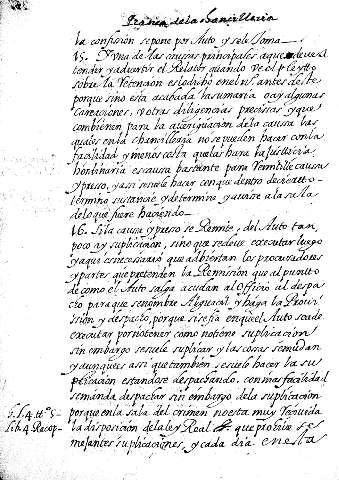 Pratica de la Chancilleria
la confision se pone por Auto, y se le toma.
45. Y una de las causas principales a que deue a
tender y aduertir el Relator quando ve el pleyto
sobre la retencion es lo dicho en el nº. antes deste
porque si no esta acabada la sumaria o ay algunas
careaciones, y otras diligencias precissas y que
combienen para la aueriguacion de la causa las
quales en la chancilleria no se pueden hacer con la
facilidad y menos costa que las hara la Justicia
hordinaria es causa bastante para Remitille causa
y presso, y assi suele hacer con que dentro de cierto
termino sustancie y determine, y auisse a la sala
de lo que fuere haciendo.
46. Si la causa y presso se Remite, del Auto tan
poco ay suplicicion, sino que se deue executar luego
y aqui es necessario que adbiertan los procuradores
y partes que pretenden la Remision que al punto
de como el Auto salga acudan al officio al despa
cto para que se nombre Alguacil y haga la Proui
ssion y despacto, porque si se fia en que el Auto se a de
executar por si o tener como no tiene suplicacion
sin embargo se suele suplicar y las cosas se mudan
y aunque es assi que tambien se suele hacer la su
plicacion estandose despachando, con mas facilidad
se manda despachar sin embargo de la suplicacion
porque en la sala del crimen no esta muy Recivida
la disposicion de la ley Real que prohibe se
mejantes suplicaciones, y cada dia en esta
l. 5. l. 4. tt.º 5.
lib. 4 Recop.